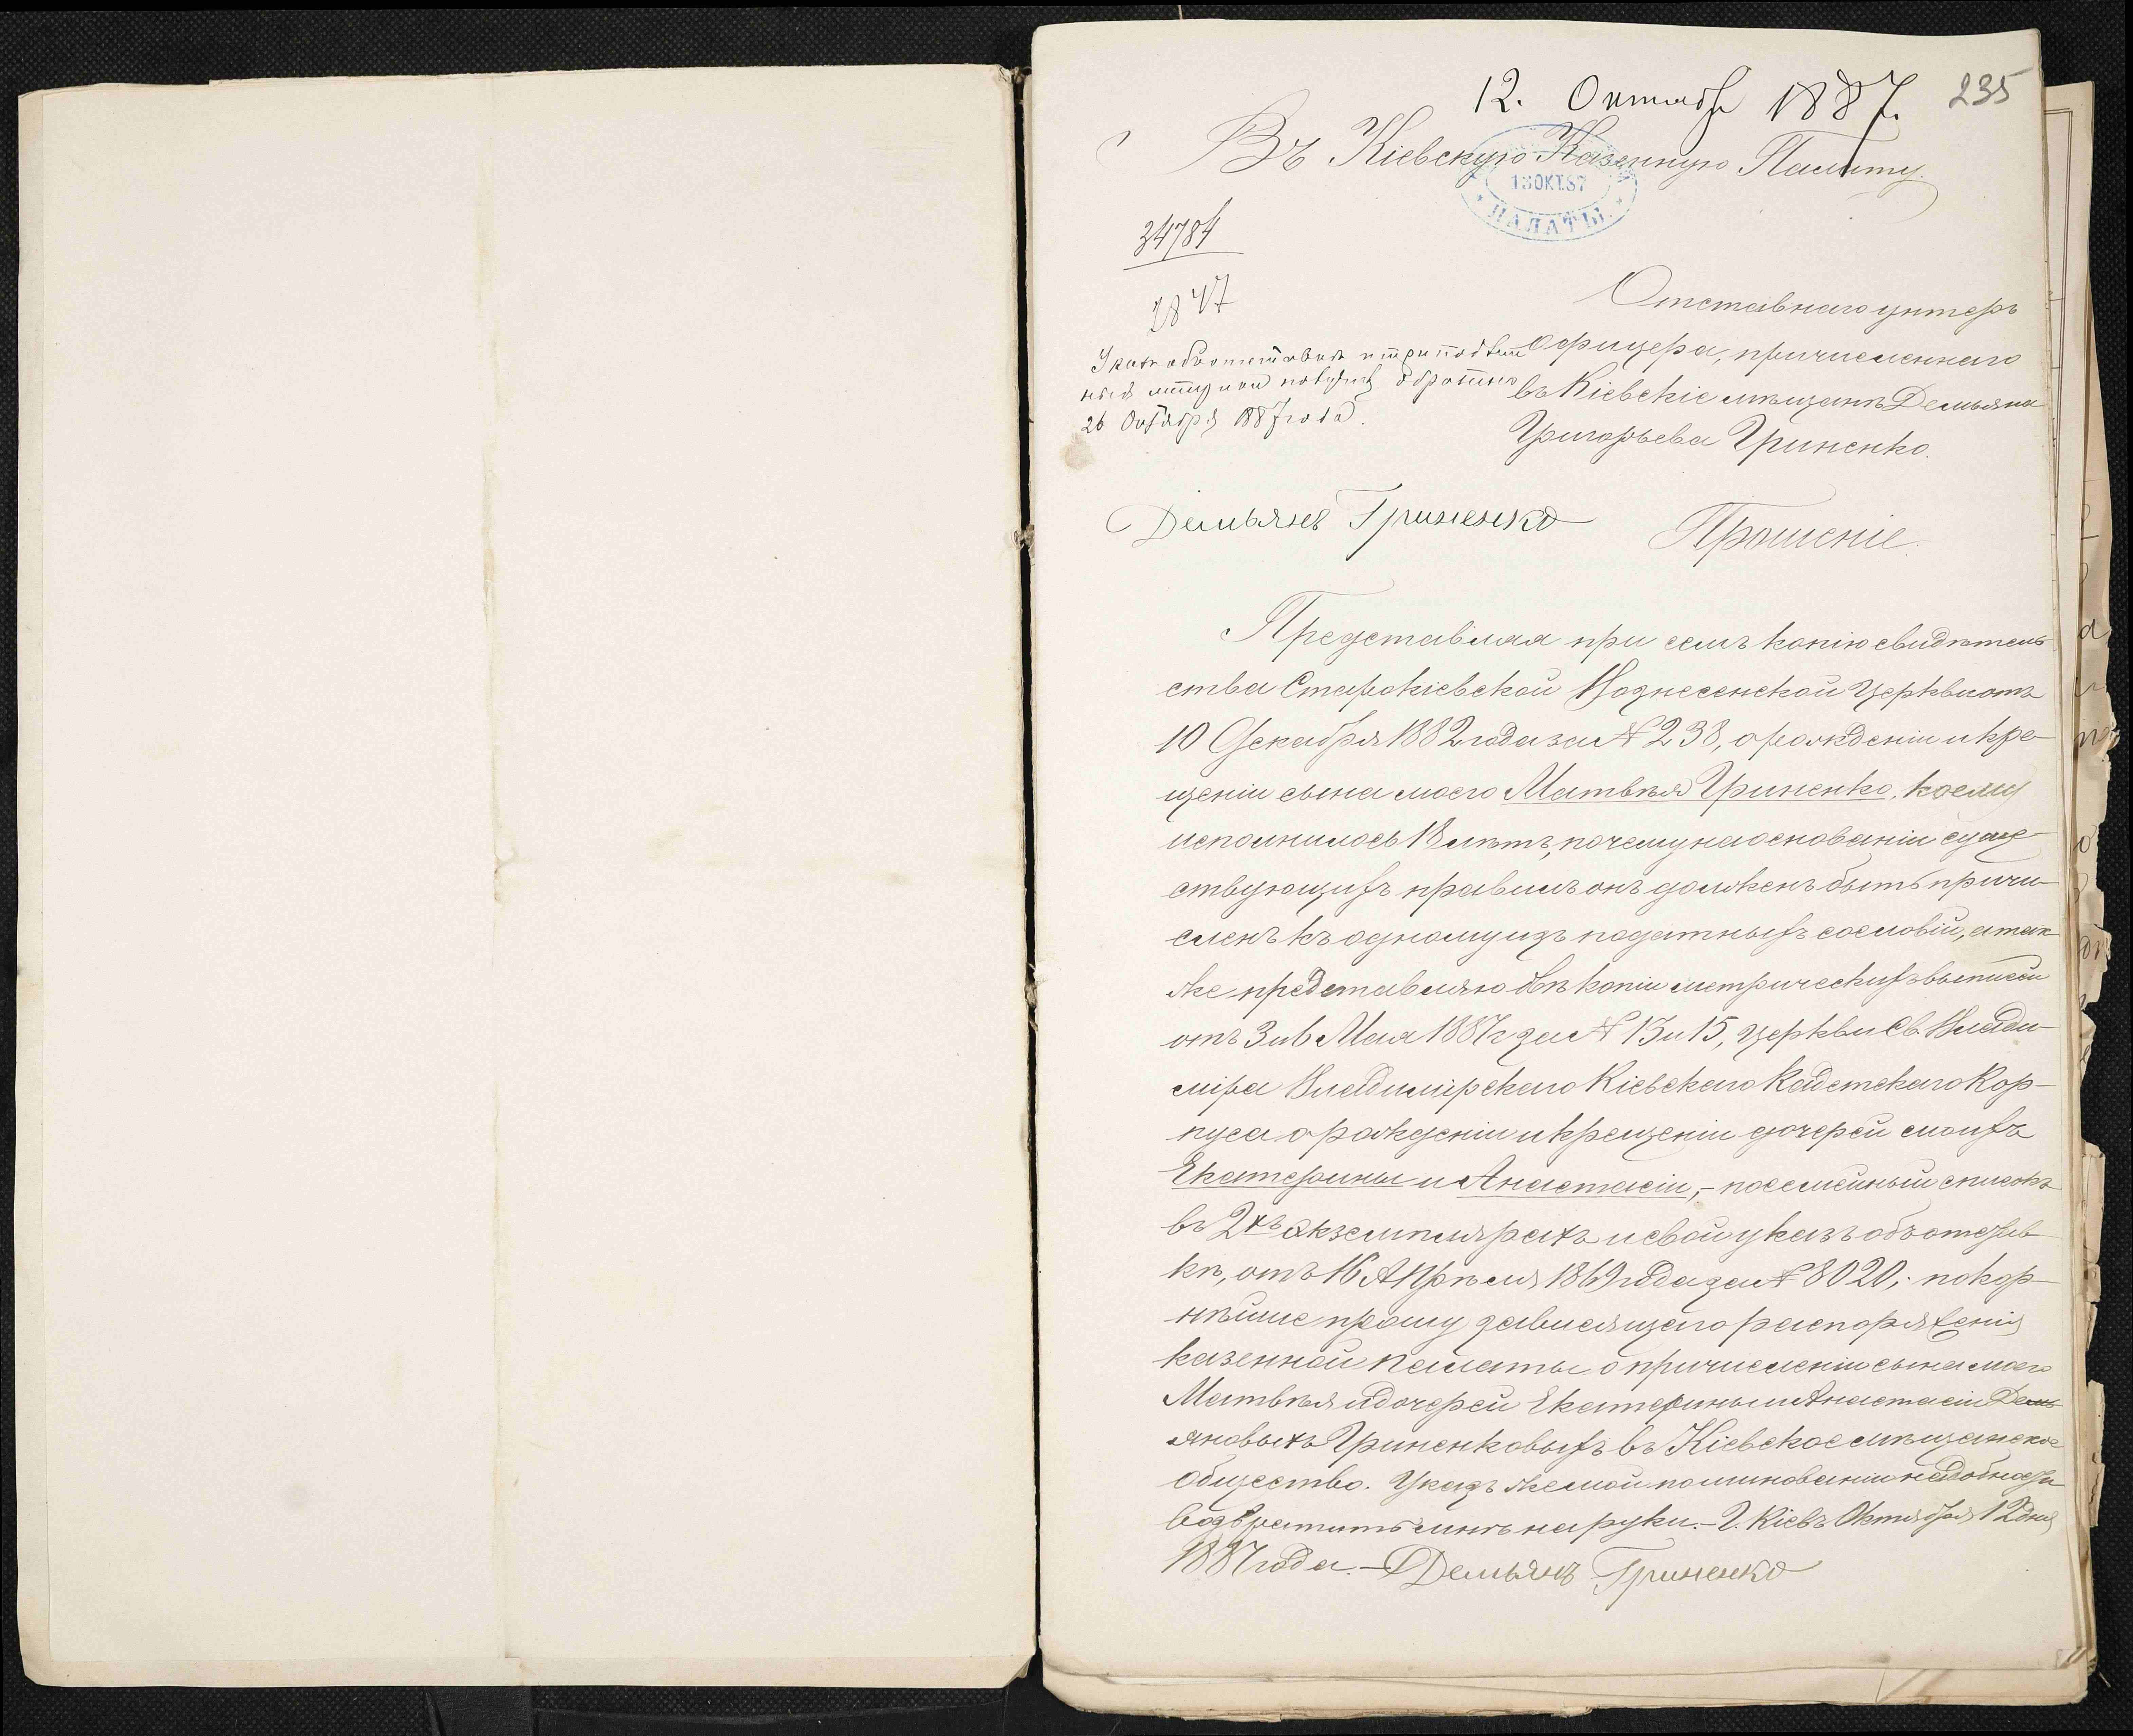 12. Октября 1887.
235
Въ Кіевскую Казенную Палату.
13 ОКТ. 87
ПАЛАТЫ
34784
2847
Отставнаго унтеръ
офицера, причисленнаго
въ Кіевскіе мѣщане Демьяна
Григорьева Гриненко.
Указъ объ отставкѣ и три
метрики получилъ обратно
26 Октября 1887 года.
Демьянъ Гриненко
Прошеніе.
Представляя при семъ копію свидѣтель
ства Старокіевской Вознесенской Церкви отъ
10 Декабря 1882 года за № 238, о рожденіи и кре-
щеніи сына моего Матвѣя Гриненко, коему
исполнилось 18 лѣтъ, почему на основаніи суще-
ствующихъ правилъ онъ долженъ быть причи-
сленъ къ одному изъ податныхъ сословій, а так-
же представляю двѣ копіи метрическихъ выписи
отъ 3 и 6 Мая 1887 г за № 13 и 15, церкви Св. Влади-
міра Владимірскаго Кіевскаго Кадетскаго Кор-
пуса о рожденіи и крещеніи дочерей моихъ
Екатерины и Анастасіи, - посемейный списокъ
въ 2хъ экземплярахъ и свой указъ объ отстав-
кѣ, отъ 16 Апрѣля 1869 года за № 8020; покор-
нѣйше прошу зависящаго распоряженія
казенной палаты о причисленіи сына моего
Матвѣя и дочерей Екатерины и Анастасіи Демь
яновыхъ Гриненковыхъ въ Кіевское мѣщанское
общество. Указъ же мой по минованіи надобности
возвратить мнѣ на руки. - Г. Кіевъ Октября 12 дня
1887 года. - Демьянъ Гриненко